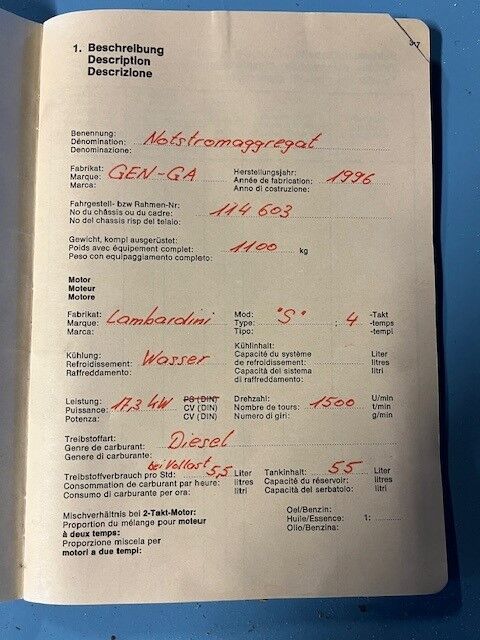 37
1. Beschreibung
Description
Descrizione
Benennung:
Dénomination: Notstromaggregat
Denominazione:
Fabrikat: Herstellungsjahr:
Marque: GEN-GA Année de fabrication: 1996
Marca: Anno di costruzione:
Fahrgestell- bzw Rahmen-Nr:
No du châssis ou du cadre: 114 603
No del chassis risp del telaio:
Gewicht, kompl ausgerüstet:
Poids avec équipement complet: 1100 kg
Peso con equipaggiamento completo:
Motor
Moteur
Motore
Fabrikat: Mod: -Takt
Marque: Lambardini Type: "S" ; 4 -temps
Marca: Tipo: -tempi
Kühlinhalt:
Kühlung: Capacité du système Liter
Refroidissement: Wasser de refroidissement: litres
Raffreddamento: Capacità del sistema litri
di raffreddamento:
Leistung: PS (DIN) Drehzahl: U/min
Puissance: 17,3 kW CV (DIN) Nombre de tours: 1500 t/min
Potenza: CV (DIN) Numero di giri: g/min
Treibstoffart:
Genre de carburant: Diesel
Genere di carburante:
bei Vollast
Treibstoffverbrauch pro Std: 5,5 Liter Tankinhalt: 55 Liter
Consommation de carburant par heure: litres Capacité du réservoir: litres
Consumo di carburante per ora: litri Capacità del serbatoio: litri
Mischverhältnis bei 2-Takt-Motor: Oel/Benzin:
Proportion du mélange pour moteur Huile/Essence: 1:
à deux temps: Olio/Benzina:
Proporzione miscela per
motori a due tempi: